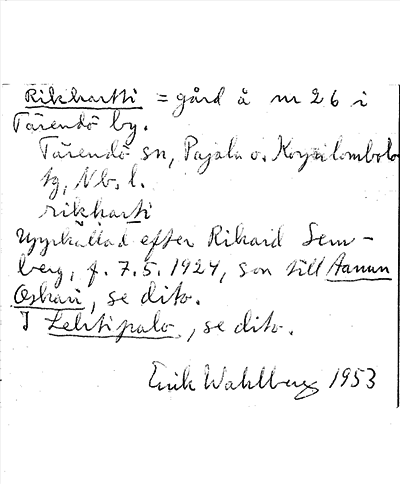 Rikhartti = gård å nr 26 i
Tärendö by.
Tärendö sn, Pajala o. Korpilombolo
tg, Nb. l.
rikharti
Uppkallad efter Rikard Sem-
berg, f. 7.5.1924, son till Aanun
Oskari, se dito.
I Lehtipalo, se dito.
Erik Wahlberg 1953